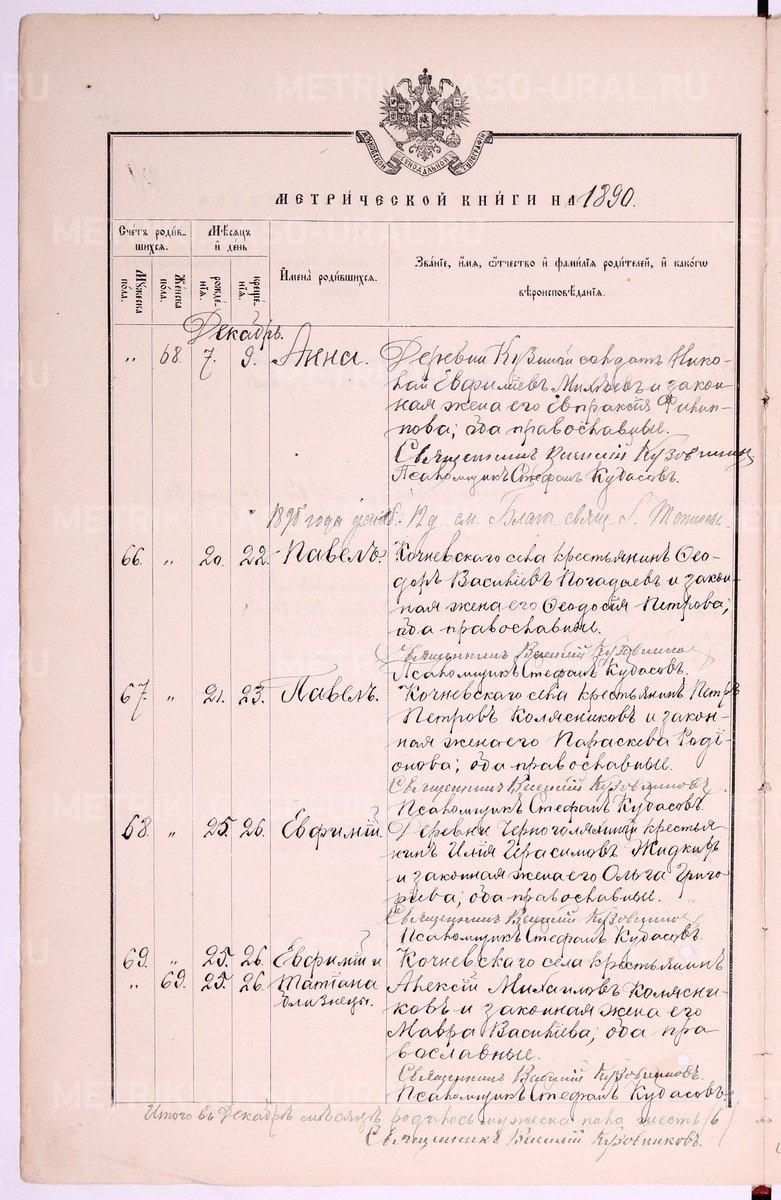 МОСКОВСКОЙ СѴНОДАЛЬНОЙ ТИПОГРАФІИ
МЕТРИ́ЧЕСКОЙ КНИ́ГИ НА 1890.
Сче́тъ роди́в-
шихся.
Мѣ́сяцъ
и҆ день
Му́жеска по́ла.
Же́нска по́ла.
рожде́нїѧ.
креще́нїѧ.
И҆мена̀ роди́вшихся.
Зва́нїе, и҆́мѧ, ѻ҆́тчество и҆ фами́лїѧ роди́телей, и҆ како́гѡ
вѣроисповѣ́данїѧ.
Декабрь.
" 68. 7. 9. Анна. Деревни Кузиной солдатъ Нико-
лай Евфиміевъ Милѣевъ и закон-
ная жена его Евпраксія Филип-
пова; оба православные.
Священникъ Василій Кузовников
Псаломщикъ Стефанъ Кудасовъ.
1895 года декаб. 12 д. см. Благ. свящ.
66. " 20. 22. Павелъ. Кочневскаго села крестьянинъ Ѳео-
доръ Васильевъ Погадаевъ и закон-
ная жена его Ѳеодосія Петрова;
оба православные.
Священникъ Василій Кузовников
Псаломщикъ Стефанъ Кудасовъ.
67. " 21. 23. Павелъ. Кочневскаго села крестьянинъ Петръ
Петровъ Колясниковъ и закон-
ная жена его Параскева Роді-
онова; оба православные.
Священникъ Василій Кузовниковъ
Псаломщикъ Стефанъ Кудасовъ.
68. " 25. 26. Евфимій. Деревни Черноголяшной крестья-
нинъ Илія Герасимовъ Жидкихъ
и законная жена его Ольга Григо-
рьева; оба православные.
Священникъ Василій Кузовников
Псаломщикъ Стефанъ Кудасовъ.
69. " 25. 26. Евфимій и Кочневскаго села крестьянинъ
" 69. 25. 26. Татіана Алексій Михаиловъ Колясни-
близнецы. ковъ и законная жена его
Мавра Васильева; оба пра
вославные.
Священникъ Василій Кузовниковъ.
Псаломщикъ Стефанъ Кудасовъ.
Итого въ Декабрѣ мѣсяцѣ родилось мужеска пола шесть (6)
Священникъ Василій Кузовниковъ.
METRIKI.GASO-URAL.RU